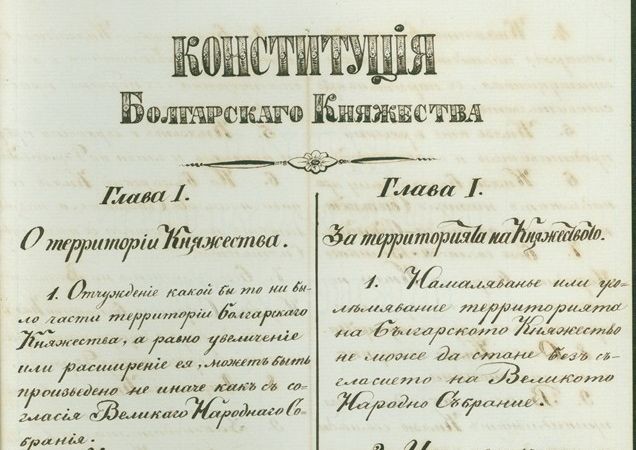 КОНСТИТУЦІЯ
БОЛГАРСКАГО КНЯЖЕСТВА
Глава I.
О территоріи Княжества.
1. Отчужденіе какой бы то ни бы-
ло части территоріи Болгарскаго
Княжества, а равно увеличеніе
или расширеніе ея, можетъ быть
произведено не иначе какъ съ со-
гласія Великаго Народнаго Со-
бранія.
Глава I.
За територията на Княжеството.
1. Намаляванье или уго-
лѣмяванье територията
на Българското Княжество
не може да стане безъ съ-
гласието на Великото
Народно Събрание.